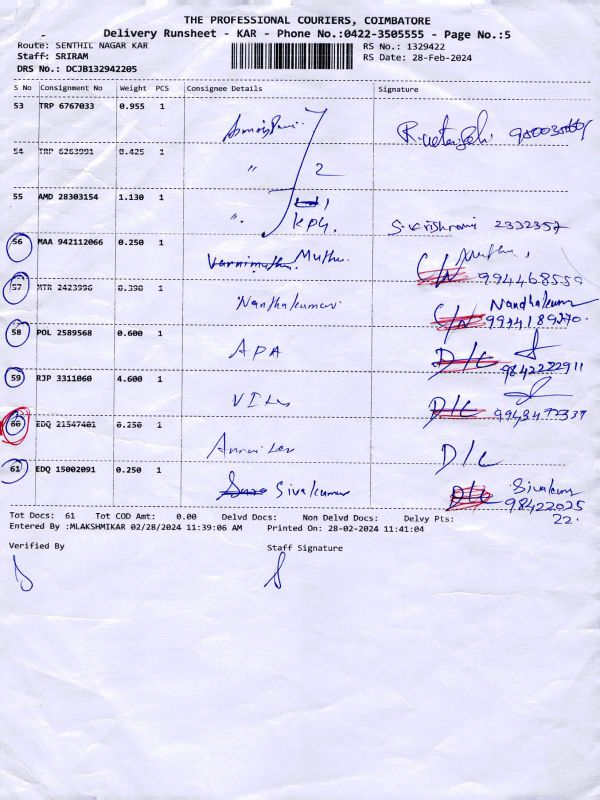 THE PROFESSIONAL COURIERS, COIMBATORE
Delivery Runsheet - KAR - Phone No.:0422-3505555 - Page No.:5
Route: SENTHIL NAGAR KAR
RS No.: 1329422
Staff: SRIRAM
RS Date: 28-Feb-2024
DRS No.: DCJB132942205
S No Consignment No Weight PCS Consignee Details Signature
53 TRP 6767033 0.955 1
54 TRP 6263991 0.425 1 " 2
55 AMD 28303154 1.130 1 " KPG. 2332357
56 MAA 942112066 0.250 1 Muthu. C/N
57 MTR 2423996 0.390 1 Nandhakumar C/N Nandhakumar
9941189270.
58 POL 2589568 0.600 1 APA D/C
9842222911
59 RJP 3311060 4.600 1 D/C
60 EDQ 21547401 0.250 1 D/C
61 EDQ 15002091 0.250 1 Sivakumar D/C Sivakumar
98422025
22.
Tot Docs: 61 Tot COD Amt: 0.00 Delvd Docs: Non Delvd Docs: Delvy Pts:
Entered By :MLAKSHMIKAR 02/28/2024 11:39:06 AM Printed On: 28-02-2024 11:41:04
Verified By Staff Signature